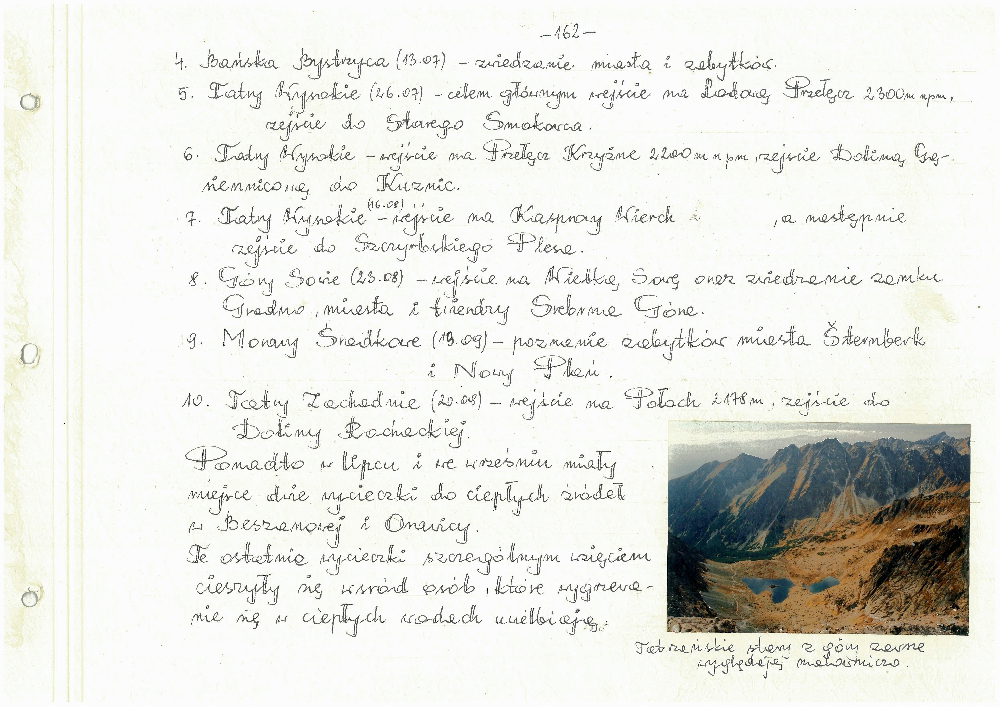 -162-
4. Bańska Bystrzyca (13.07) - zwiedzanie miasta i zabytków.
5. Tatry Wysokie (26.07) - celem głównym wejście na Lodową Przełęcz 2300 m npm,
zejście do Starego Smokovca.
6. Tatry Wysokie - wejście na Przełęcz Krzyżne 2200 m npm, zejście Doliną Gą-
siennicową do Kuźnic.
7. Tatry Wysokie (16.08) - wejście na Kasprowy Wierch , a następnie
zejście do Szczyrbskiego Plesa.
8. Góry Sowie (23.08) - wejście na Wielką Sowę oraz zwiedzanie zamku
Grodno, miasta i twierdzy Srebrna Góra.
9. Morawy Środkowe (13.09) - poznanie zabytków miasta Šternberk
i Nowy
10. Tatry Zachodnie (20.09) - wejście na Połach 2178 m, zejście do
Doliny Rochackiej.
Ponadto w lipcu i we wrześniu miały
miejsce dwie wycieczki do ciepłych źródeł
w Beszanowej i Orawicy.
Te ostatnie wycieczki szczególnym wzięciem
cieszyły się wśród osób, które wygrzewa-
nie się w ciepłych wodach uwielbiają.
Tatrzańskie stawy z góry zawsze
wyglądają malowniczo.